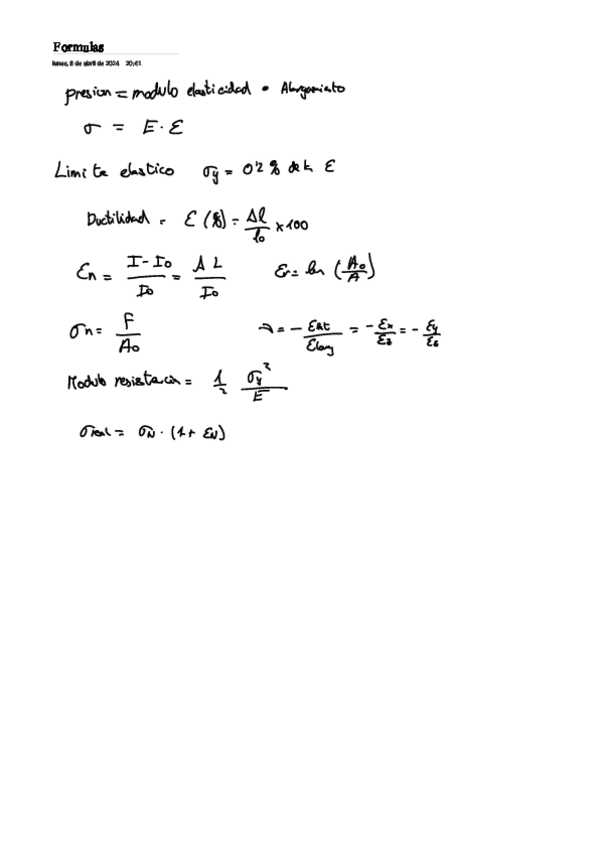 Formulas
lunes, 8 de abril de 2024 20:41
presion = modulo elasticidad • Alargamiento
σ = E · ε
Limite elastico σy = 0'2 % de la ε
Ductilidad = ε (%) = Δl / l₀ × 100
εn = I - I₀ / I₀ = Δ L / I₀ εr = ln (A₀ / A)
σn = F / A₀ ν = - εlat / εlong = - εx / εz = - εy / εz
Modulo resistencia = 1/2 σy² / E
σreal = σN · (1 + εN)